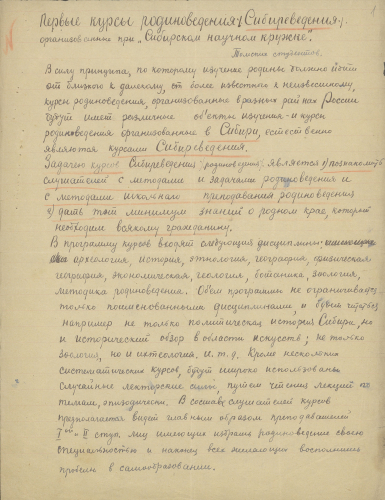 Первые курсы родиноведения /Сибиреведения./
организованные при „Сибирском научном кружке".
Томских студентов.
В силу принципа, по которому изучение родины должно идти
от близкого к далекому, от более известного к неизвестному,
курсы родиноведения, организованные в разных районах России
будут иметь различные об'екты изучения и курсы
родиноведения организованные в Сибири, естественно
являются курсами Сибиреведения.
Задачею курсов Сибиреведения (родиноведения) является 1) познакомить
слушателей с методами и задачами родиноведения и
с методами школьного преподавания родиноведения
2) дать тот минимум знаний о родном крае, который
необходим всякому гражданину.
В программу курсов входят следующие дисциплины:
археология, история, этнология, география, физическая
география, экономическая, геология, ботаника, зоология,
методика родиноведения. Объем программы не ограничивается
только поименованными дисциплинами, и будет
например не только политическая история Сибири, но
и исторический обзор в области искусств; не только
зоология, но и ихтиология, и т.д. Кроме нескольких
систематических курсов, будут широко использованы
случайные лекторские силы, путем чтения лекций по
темам, эпизодически. В составе слушателей курсов
предполагается видеть главным образом преподавателей
I й и II ступ., лиц имеющих избрать родиноведение своею
специальностью и наконец всех желающих восполнить
пробелы в самообразовании.